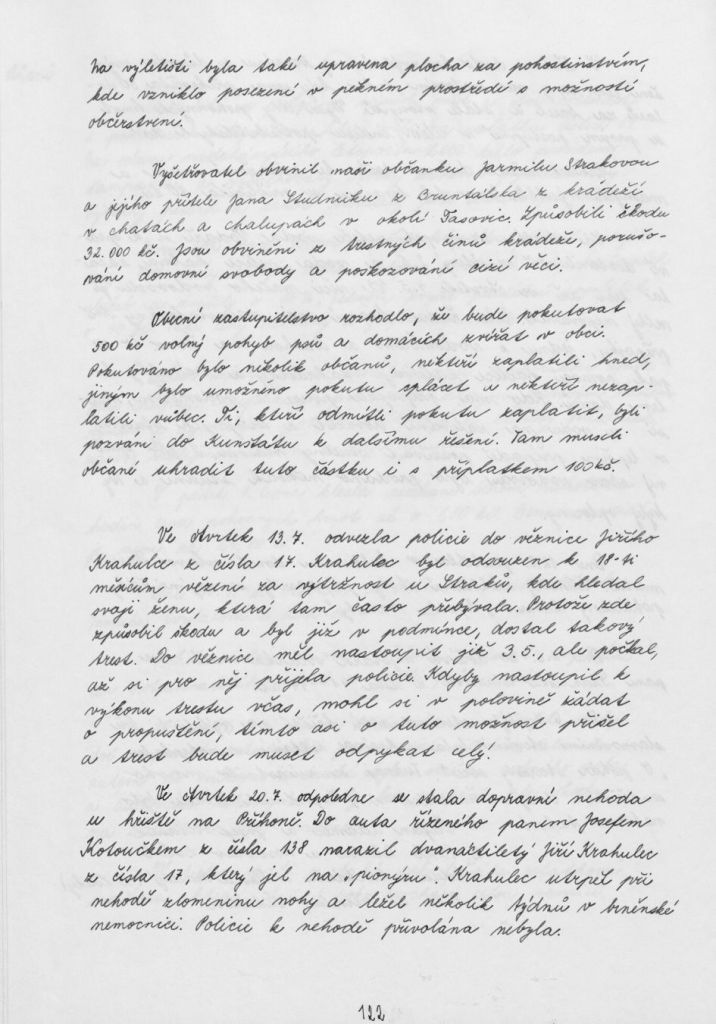 Na výletišti byla také upravena plocha za pohostinstvím,
kde vzniklo posezení v pěkném prostředí s možností
občerstvení.
Vyšetřovatel obvinil naši občanku Jarmilu Strakovou
a jejího přítele Jana Studniku z Bruntálska z krádeží
v chatách a chalupách v okolí Tasovic. Způsobili škodu
32.000 kč. Jsou obviněni z trestných činů krádeže, porušo-
vání domovní svobody a poškozování cizí věci.
Obecní zastupitelstvo rozhodlo, že bude pokutovat
500 kč volný pohyb psů a domácích zvířat v obci.
Pokutováno bylo několik občanů, někteří zaplatili hned,
jiným bylo umožněno pokutu splácet a někteří nezap-
latili vůbec. Ti, kteří odmítli pokutu zaplatit, byli
pozváni do Kunštátu k dalšímu řešení. Tam museli
občané uhradit tuto částku i s příplatkem 100 kč.
Ve čtvrtek 13.7. odvezla policie do věznice Jiřího
Krahulce z čísla 17. Krahulec byl odsouzen k 18-ti
měsícům vězení za výtržnost u Straků, kde hledal
svoji ženu, která tam často přebývala. Protože zde
způsobil škodu a byl již v podmínce, dostal takový
trest. Do věznice měl nastoupit již 3.5., ale počkal,
až si pro něj přijela policie. Kdyby nastoupil k
výkonu trestu včas, mohl si v polovině žádat
o propuštění, tímto asi o tuto možnost přišel
a trest bude muset odpykat celý.
Ve čtvrtek 20.7. odpoledne se stala dopravní nehoda
u hřiště na Příhoně. Do auta řízeného panem Josefem
Kotoučkem z čísla 138 narazil dvanáctiletý Jiří Krahulec
z čísla 17, který jel na „pionýru“. Krahulec utrpěl při
nehodě zlomeninu nohy a ležel několik týdnů v brněnské
nemocnici. Policie k nehodě přivolána nebyla.
122